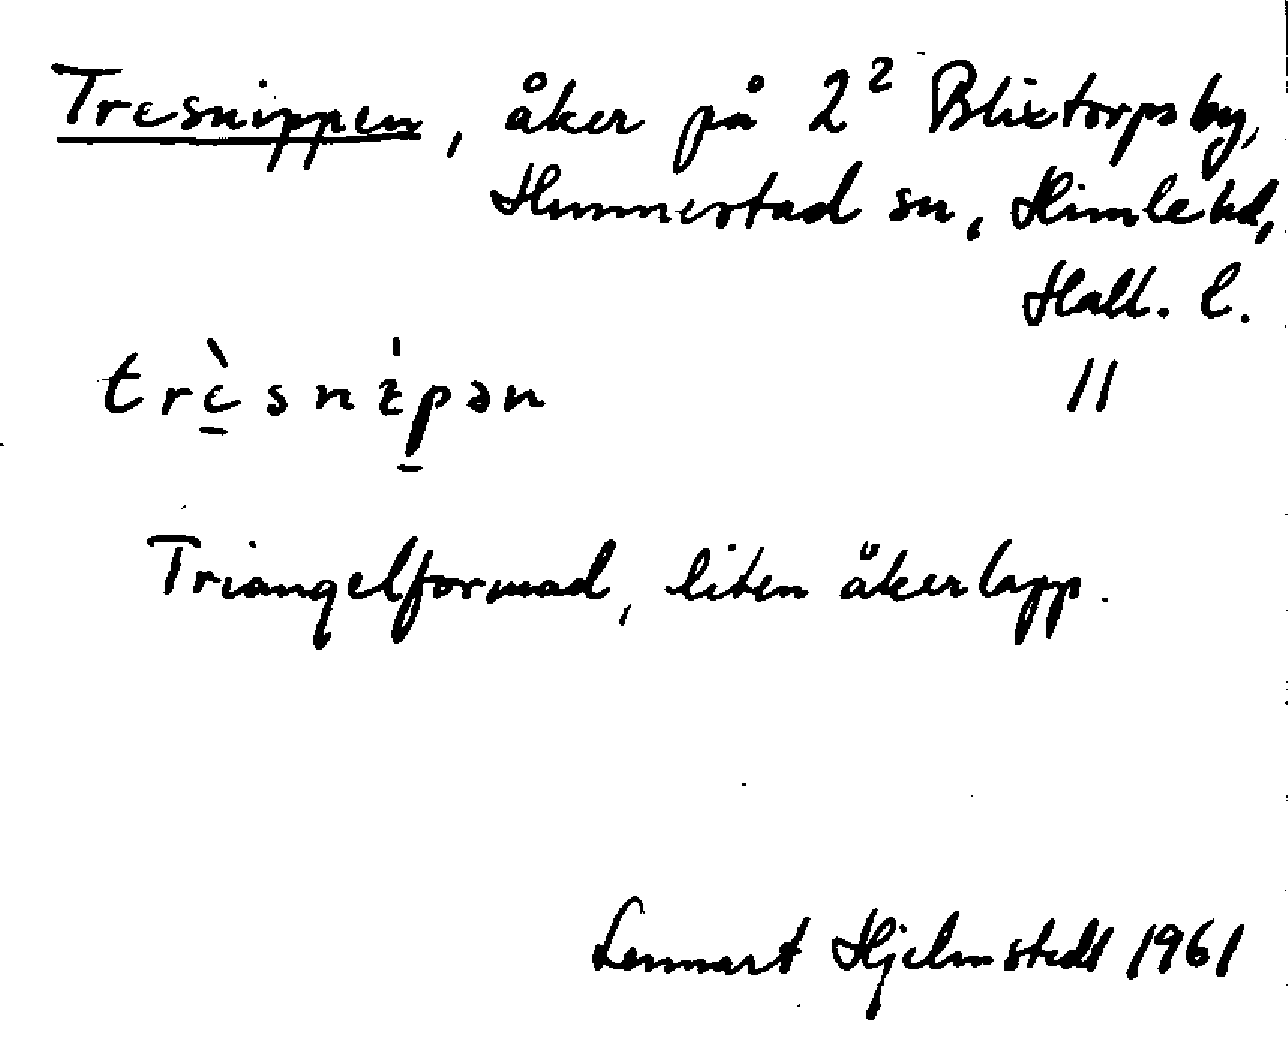 Tresnippen, åker på 2² Blixtorps by,
Hunnestad sn, Himle hd,
Hall. l.
trè̱snɪ̍p̱ən
//
Triangelformad, liten åkerlapp.
Lennart Hjelmstedt 1961